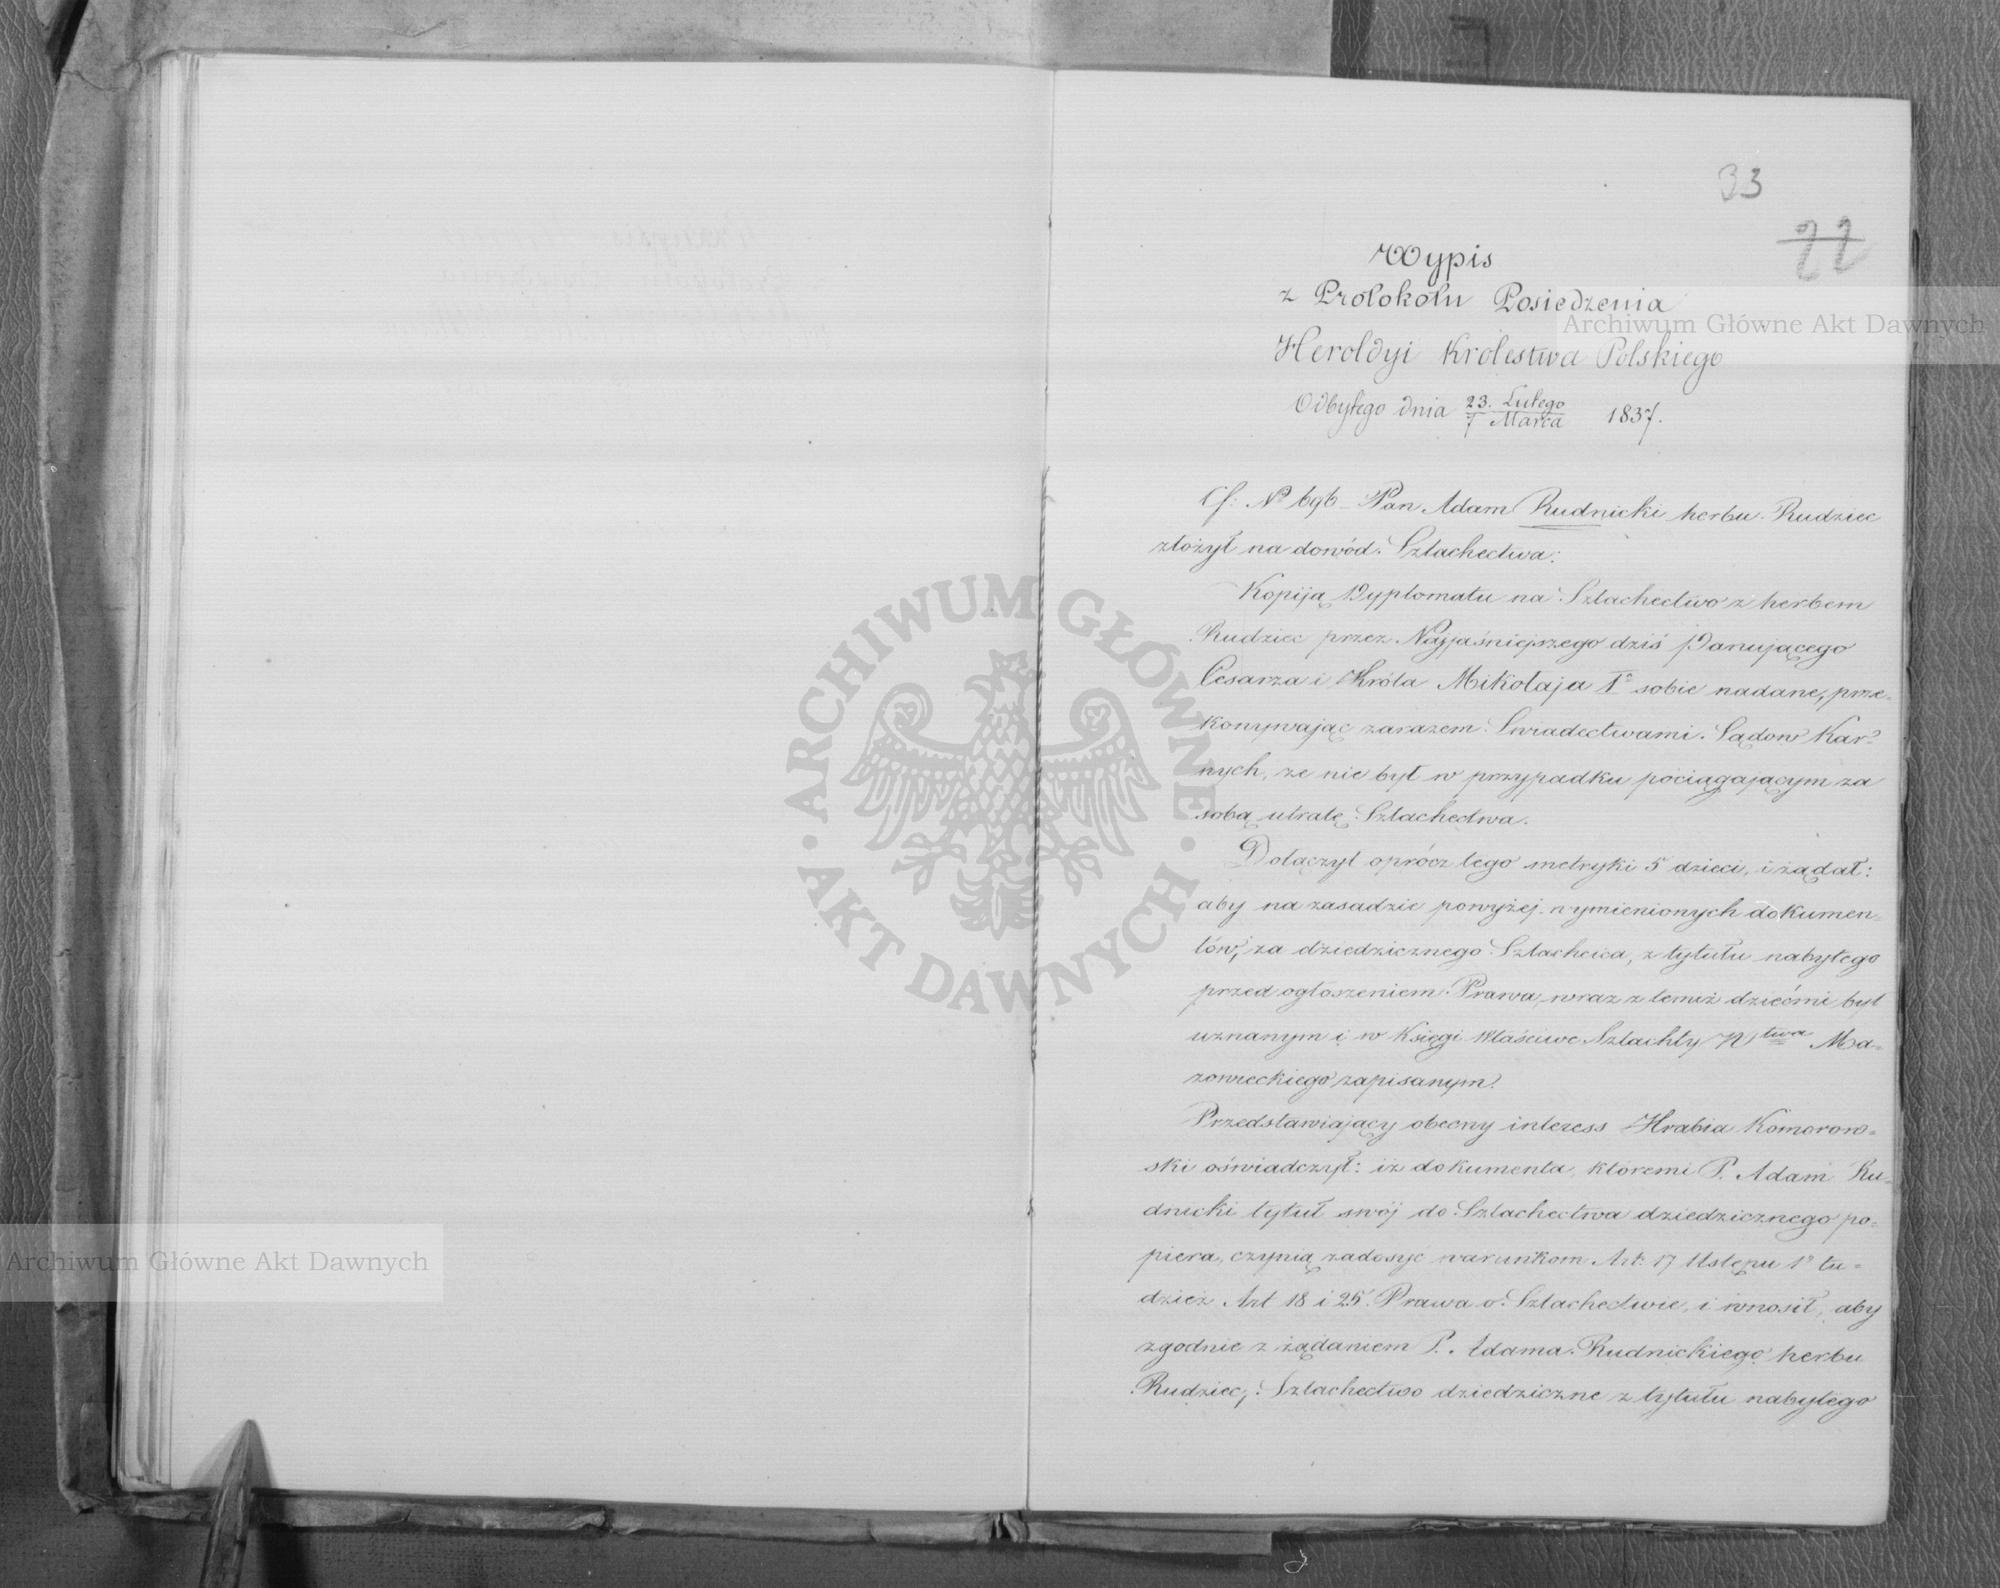 33
22
Wypis
z Protokółu Posiedzenia
Heroldyi Królestwa Polskiego
Odbytego dnia 23. Lutego / 7 Marca 1837.
Cf: No 696 – Pan Adam Rudnicki herbu Rudziec
złożył na dowód Szlachectwa:
Kopiją Dyplomatu na Szlachectwo z herbem
Rudziec przez Najjaśniejszego dziś Panującego
Cesarza i Króla Mikołaja Igo sobie nadane, prze-
konywając zarazem Swiadectwami Sądów Kar-
nych, że nie był w przypadku pociągającym za
sobą utratę Szlachectwa.
Dołączył oprócz tego metryki 5 dzieci, i żądał:
aby na zasadzie powyżej wymienionych dokumen-
tów, za dziedzicznego Szlachcica, z tytułu nabytego
przed ogłoszeniem Prawa, wraz z temiż dziećmi był
uznanym i w Księgi Właściwe Szlachty Wtwa Ma-
zowieckiego zapisanym.
Przedstawiający obecny interess Hrabia Komorow-
ski oświadczył: iż dokumenta, któremi P. Adam Ru-
dnicki tytuł swój do Szlachectwa dziedzicznego po-
piera, czynią zadosyć warunkom Art: 17 Ustępu 1o tu-
dzież Art 18 i 25 Prawa o Szlachectwie, i wnosił, aby
zgodnie z żądaniem P. Adama Rudnickiego herbu
Rudziec, Szlachectwo dziedziczne z tytułu nabytego
Archiwum Główne Akt Dawnych
Archiwum Główne Akt Dawnych
ARCHIWUM GŁÓWNE · AKT DAWNYCH ·